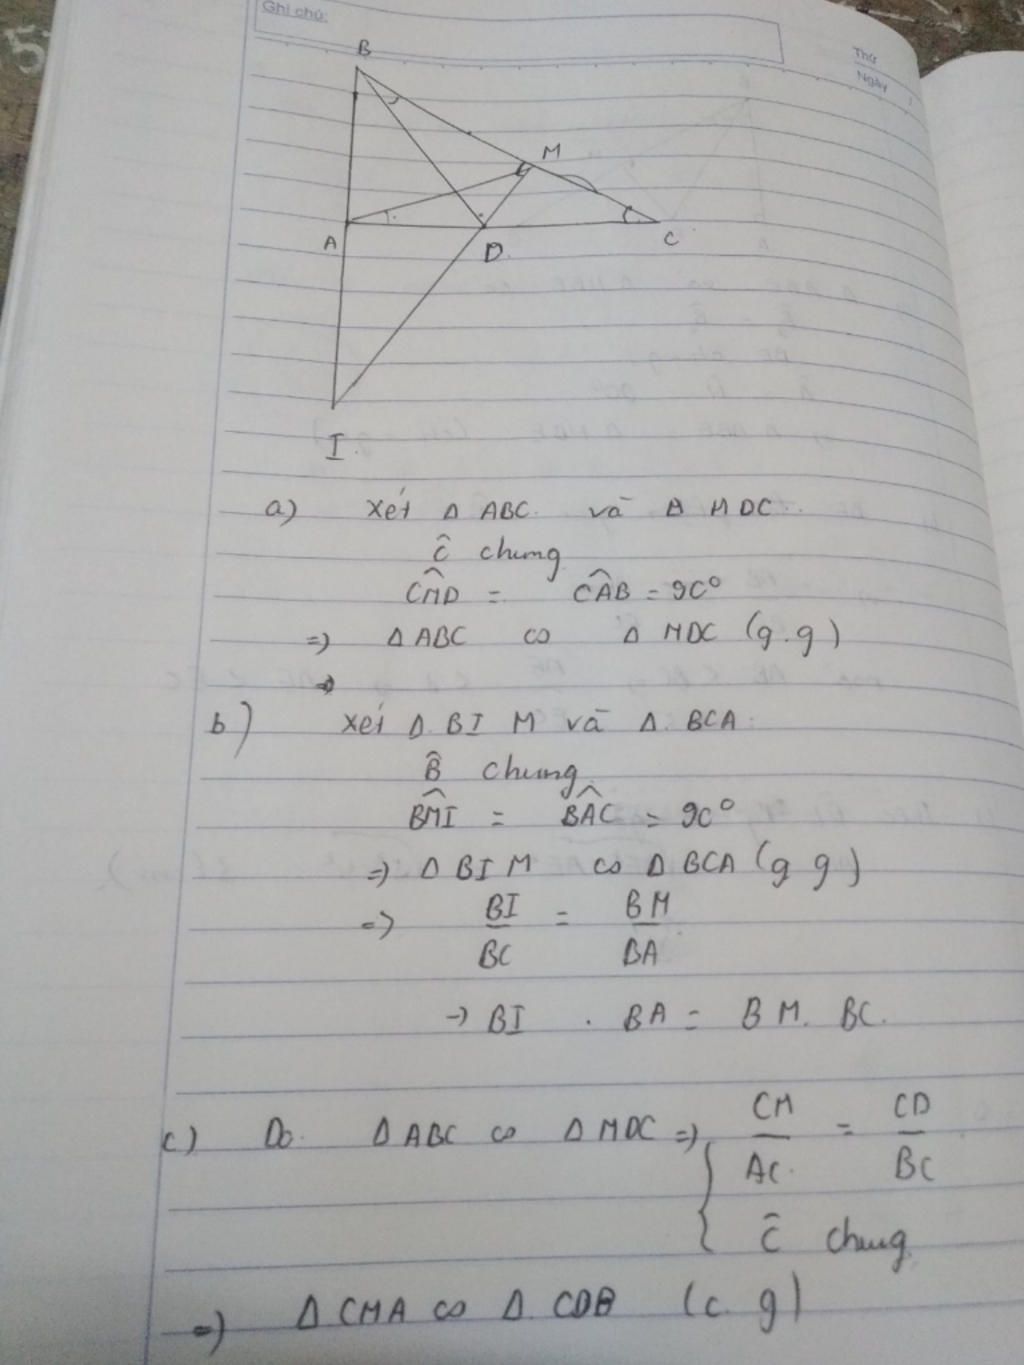 Ghi chú:
Thứ
Ngày
B
M
A
D
C
I
a) Xét Δ ABC và Δ MDC.
Ĉ chung
CM̂D = CÂB = 90°
=> Δ ABC ∽ Δ MDC (g.g)
=>
b) Xét Δ BIM và Δ BCA:
B̂ chung
BM̂I = BÂC = 90°
=> Δ BIM ∽ Δ BCA (g g)
=> BI/BC = BM/BA
-> BI . BA = BM. BC.
c) Do Δ ABC ∽ Δ MDC => { CM/AC = CD/BC
Ĉ chung
=> Δ CMA ∽ Δ CDB (c. g)